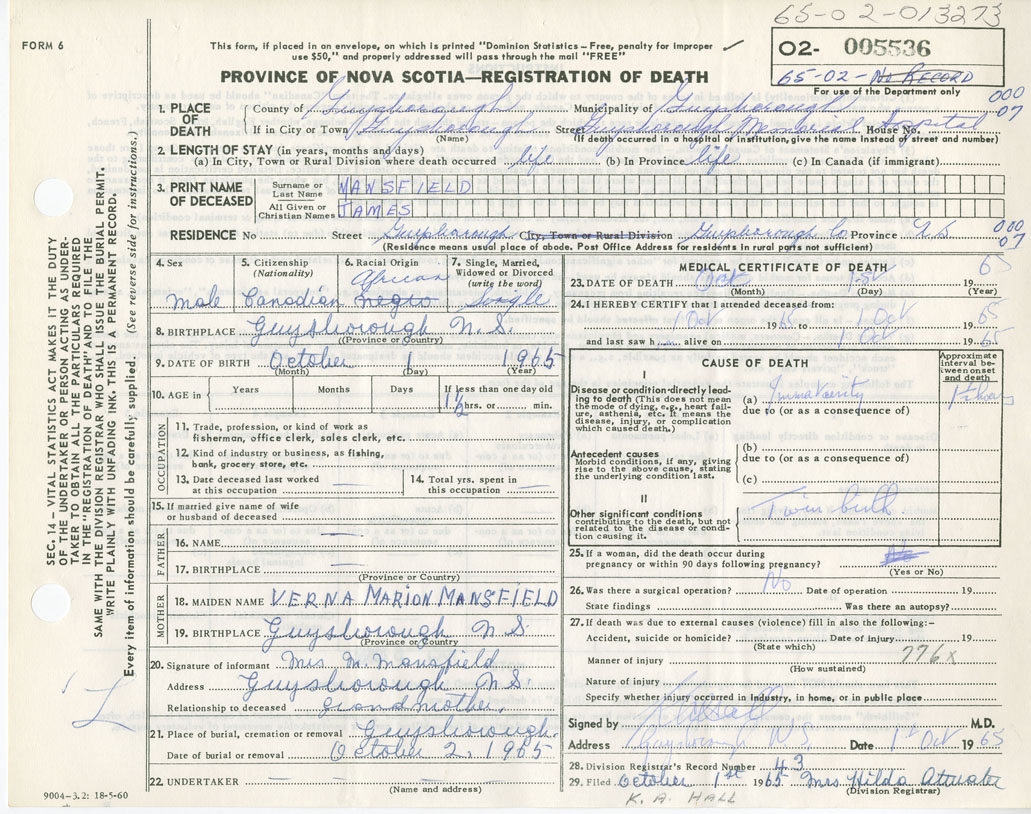 65-02-013273
FORM 6
This form, if placed in an envelope, on which is printed "Dominion Statistics—Free, penalty for improper
use $50," and properly addressed will pass through the mail "FREE"
02- 005536
65-02- No Record
PROVINCE OF NOVA SCOTIA—REGISTRATION OF DEATH
For use of the Department only
000
07
1. PLACE OF DEATH
County of Guysborough Municipality of Guysborough
If in City or Town Guysborough Street Guysborough Memorial House No. Hospital
(Name) (If death occurred in a hospital or institution, give the name instead of street and number)
2. LENGTH OF STAY (in years, months and days)
(a) In City, Town or Rural Division where death occurred life (b) In Province life (c) In Canada (if immigrant)
3. PRINT NAME OF DECEASED
Surname or Last Name MANSFIELD
All Given or Christian Names JAMES
RESIDENCE No Street Guysborough City, Town or Rural Division Guysborough Co Province N.S. 000
07
(Residence means usual place of abode. Post Office Address for residents in rural parts not sufficient)
4. Sex
Male
5. Citizenship
(Nationality)
Canadian
6. Racial Origin
African
negro
7. Single, Married, Widowed or Divorced
(write the word)
Single
8. BIRTHPLACE Guysborough N.S.
(Province or Country)
9. DATE OF BIRTH October 1 1965
(Month) (Day) (Year)
10. AGE in Years Months Days If less than one day old
1½ hrs. or min.
OCCUPATION
11. Trade, profession, or kind of work as
fisherman, office clerk, sales clerk, etc.
12. Kind of industry or business, as fishing,
bank, grocery store, etc.
13. Date deceased last worked
at this occupation
14. Total yrs. spent in
this occupation
15. If married give name of wife
or husband of deceased
FATHER
16. NAME
17. BIRTHPLACE
(Province or Country)
MOTHER
18. MAIDEN NAME VERNA MARION MANSFIELD
19. BIRTHPLACE Guysborough N.S.
(Province or Country)
20. Signature of informant Mrs M. Mansfield
Address Guysborough N.S.
Relationship to deceased grandmother.
21. Place of burial, cremation or removal Guysborough.
Date of burial or removal October 2, 1965
22. UNDERTAKER
(Name and address)
MEDICAL CERTIFICATE OF DEATH
23. DATE OF DEATH Oct 1st 1965
(Month) (Day) (Year)
24. I HEREBY CERTIFY that I attended deceased from:
1 Oct 1965 to 1 Oct 1965
and last saw h alive on 1 Oct 1965
CAUSE OF DEATH
Approximate interval between onset and death
I
Disease or condition directly leading to death (This does not mean the mode of dying, e.g., heart failure, asthenia, etc. It means the disease, injury, or complication which caused death.)
(a) Immaturity
due to (or as a consequence of)
Antecedent causes
Morbid conditions, if any, giving rise to the above cause, stating the underlying condition last.
(b)
due to (or as a consequence of)
(c)
II
Other significant conditions
contributing to the death, but not related to the disease or condition causing it.
Twin birth
25. If a woman, did the death occur during
pregnancy or within 90 days following pregnancy?
(Yes or No)
26. Was there a surgical operation? No Date of operation 19
State findings Was there an autopsy?
27. If death was due to external causes (violence) fill in also the following:—
Accident, suicide or homicide? Date of injury 19
(State which)
Manner of injury 776x
(How sustained)
Nature of injury
Specify whether injury occurred in Industry, in home, or in public place
Signed by K A Hall M.D.
Address Guysborough N.S. Date 1 Oct 1965
28. Division Registrar's Record Number 43
29. Filed October 1st 1965 Mrs Hilda Atwater
(Division Registrar)
K. A. HALL
9004-3.2: 18-5-60
SEC. 14—VITAL STATISTICS ACT MAKES IT THE DUTY
OF THE UNDERTAKER OR PERSON ACTING AS UNDER-
TAKER TO OBTAIN ALL THE PARTICULARS REQUIRED
IN THE "REGISTRATION OF DEATH" AND TO FILE THE
SAME WITH THE DIVISION REGISTRAR WHO SHALL ISSUE THE BURIAL PERMIT.
WRITE PLAINLY WITH UNFADING INK. THIS IS A PERMANENT RECORD.
Every item of information should be carefully supplied. (See reverse side for instructions.)